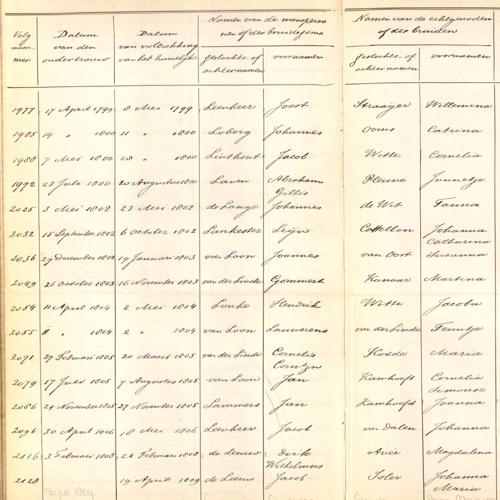 Volg Datum Datum Namen van de mansperso Namen van de echtgenoten
num- van den van voltrekking nen of der bruidegoms of der bruiden
mer ondertrouw van het huwelijk geslachts- of voornamen geslachts- of voornamen
achternamen achternamen
1977 17 April 1799 8 Mei 1799 Leenheer Joost Straaijer Willemina
1985 14 " 1800 11 " 1800 Loberg Johannes Ooms Catrina
1988 7 Mei 1800 28 " 1800 Linthout Jacob Witte Cornelia
1992 23 Julij 1800 20 Augustus 1800 Laven Abraham Jannetje
Gillis
2025 3 Mei 1802 23 Mei 1802 de Lange Johannes de Wit Tanna
2032 15 September 1802 6 October 1802 Lankester Leijn Johanna
Catharina
2036 29 December 1802 19 Januari 1803 van Loon Joannes van Oost Susanna
2049 26 October 1803 16 November 1803 van der Linde Gommert Kanaar Martina
2054 11 April 1804 2 Mei 1804 Lonke Hendrik Witte Jacoba
2055 " " 1804 2 " 1804 van Loon Lauwerens van der Linde Teuntje
2071 27 Februari 1805 20 Maart 1805 van der Linde Cornelis Kodde Maria
2079 17 Julij 1805 7 Augustus 1805 van Loon Jan Kamhooft Cornelia
Simonse
2086 24 November 1805 27 November 1805 Lammers Jan Kamhooft Joanna
2096 30 April 1806 18 Mei 1806 Leenheer Jacob van Dalen Johanna
2116 3 Februari 1808 24 Februari 1808 de Leeuw Dirk Magdalena
Wilhelmus
2128 19 April 1809 de Leeuw Jacob Toler Johanna
Maria